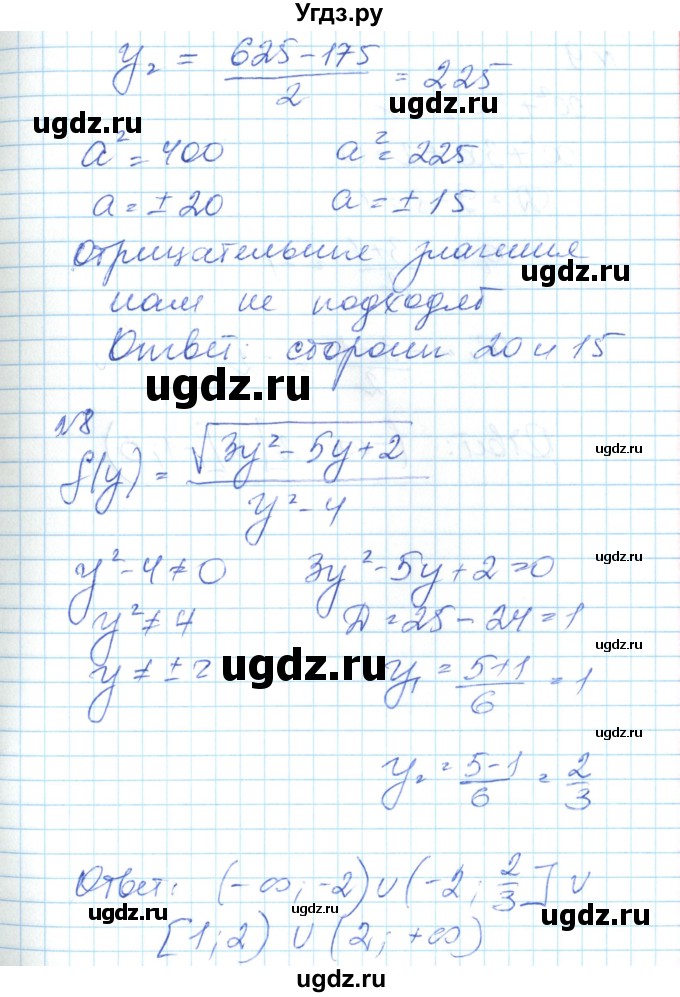 Угдз.ру
y₂ = (625-175)/2 = 225
ugdz.ru
ugdz.ru
a² = 400 a² = 225
a = ± 20 a = ± 15
отрицательные значения
ugdz.ru
нам не подходят
Ответ: стороны 20 и 15
ugdz.ru
№8
f(y) = √(3y² - 5y + 2)/(y² - 4)
ugdz.ru
y² - 4 ≠ 0 3y² - 5y + 2 = 0
ugdz.ru
y² ≠ 4 D = 25 - 24 = 1
ugdz.ru
y ≠ ± 2 y₁ = (5+1)/6 = 1
ugdz.ru
ugdz.ru
y₂ = (5-1)/6 = 2/3
ugdz.ru
Ответ: (-∞; -2) ∪ (-2; 2/3] ∪
[1; 2) ∪ (2; +∞)
ugdz.ru
ugdz.ru
ugdz.ru
ugdz.ru